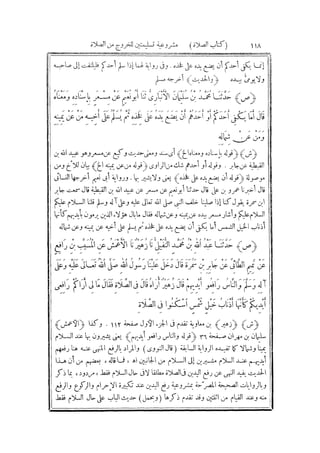 ١١٨ (كتاب الصلاة) مشروعية تسليمتين للخروج من الصلاة
إنما يكفى أحدكم أن يضع يده على فخذه . وفى رواية لهما إذا سلم أحدكم فليلتفت إلى صاحبه
ولا يومئ بيده (والحديث) أخرجه مسلم
(ص) حَدَّثَنَا مُحَمَّدُ بْنُ سُلَيْمَانَ الْأَنْبَارِىُّ نَا أَبُو نُعَيْمٍ عَنْ مِسْعَرٍ بِإِسْنَادِهِ وَمَعْنَاهُ
قَالَ أَمَا يَكْفِى أَحَدَكُمْ أَوْ أَحَدَهُمْ أَنْ يَضَعَ يَدَهُ عَلَى فَخِذِهِ ثُمَّ يُسَلِّمُ عَلَى أَخِيهِ مِنْ عَنْ يَمِينِهِ
وَمِنْ عَنْ شِمَالِهِ
(ش) (قوله بإسناده ومعناه الخ) أى بسند ومعنى حديث وكيع عن مسعر وهو عبيد الله بن
القبطية عن جابر . وقوله أو أحدهم شك من الراوى (قوله من عن يمينه الخ) بيان للأخ ومن
موصولة (قوله أن يضع يده على فخذه) يعنى ولا يشير بها . ورواية أبى نعيم أخرجها النسائى
قال أخبرنا عمرو بن على قال حدثنا أبو نعيم عن مسعر عن عبيد الله بن القبطية قال سمعت جابر
ابن سمرة يقول كنا إذا صلينا خلف النبى صلى الله تعالى عليه وعلى آله وسلم قلنا السلام عليكم
السلام عليكم وأشار مسعر بيده عن يمينه وعن شماله فقال ما بال هؤلاء الذين يرمون بأيديهم كأنها
أذناب الخيل الشمس أما يكفى أن يضع يده على فخذه ثم يسلم على أخيه عن يمينه وعن شماله
(ص) حَدَّثَنَا عَبْدُ اللهِ بْنُ مُحَمَّدٍ النُّفَيْلِىُّ نَا زُهَيْرٌ نَا الْأَعْمَشُ عَنِ الْمُسَيَّبِ بْنِ رَافِعٍ
عَنْ تَمِيمٍ الطَّائِىِّ عَنْ جَابِرِ بْنِ سَمُرَةَ قَالَ دَخَلَ عَلَيْنَا رَسُولُ اللهِ صَلَّى اللهُ تَعَالَى عَلَيْهِ وَعَلَى
آلِهِ وَسَلَّمَ وَالنَّاسُ رَافِعُو أَيْدِيهِمْ قَالَ زُهَيْرٌ أُرَاهُ قَالَ فِى الصَّلَاةِ فَقَالَ مَا لِى أَرَاكُمْ رَافِعِى
أَيْدِيكُمْ كَأَنَّهَا أَذْنَابُ خَيْلٍ شُمْسٍ اسْكُنُوا فِى الصَّلَاةِ
(ش) (زهير) بن معاوية تقدم فى الجزء الأول صفحة ١١٢ . وكذا (الأعمش)
سليمان بن مهران صفحة ٣٦ (قوله والناس رافعو أيديهم) يعنى يشيرون بها عند السلام
يمينا وشمالا كما تفيده الرواية السابقة (قال النووى) والمراد بالرفع المنهى عنه هنا رفعهم
أيديهم عند السلام مشيرين إلى السلام من الجانبين اه . فما قاله بعضهم من أن هذا
الحديث يفيد النهى عن رفع اليدين فى الصلاة مطلقا لا فى حال السلام فقط ، مردود بما ذكر
وبالروايات الصحيحة المصرّحة بمشروعية رفع اليدين عند تكبيرة الإحرام والركوع والرفع
منه وعند القيام من اثنتين وقد تقدم ذكرها (وبحمل) حديث الباب على حال السلام فقط